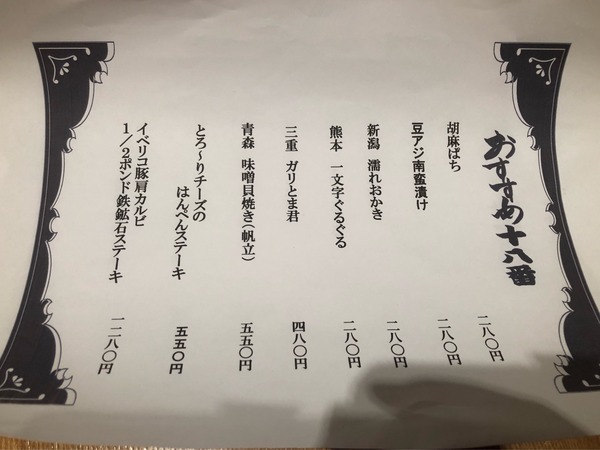 おすすめ十八番
胡麻ぱち 二八〇円
豆アジ南蛮漬け 二八〇円
新潟 濡れおかき 二八〇円
熊本 一文字ぐるぐる 二八〇円
三重 ガリとま君 四八〇円
青森 味噌貝焼き(帆立) 五五〇円
とろ〜りチーズの
はんぺんステーキ 五五〇円
イベリコ豚肩カルビ
1/2ポンド鉄鉱石ステーキ 一二八〇円